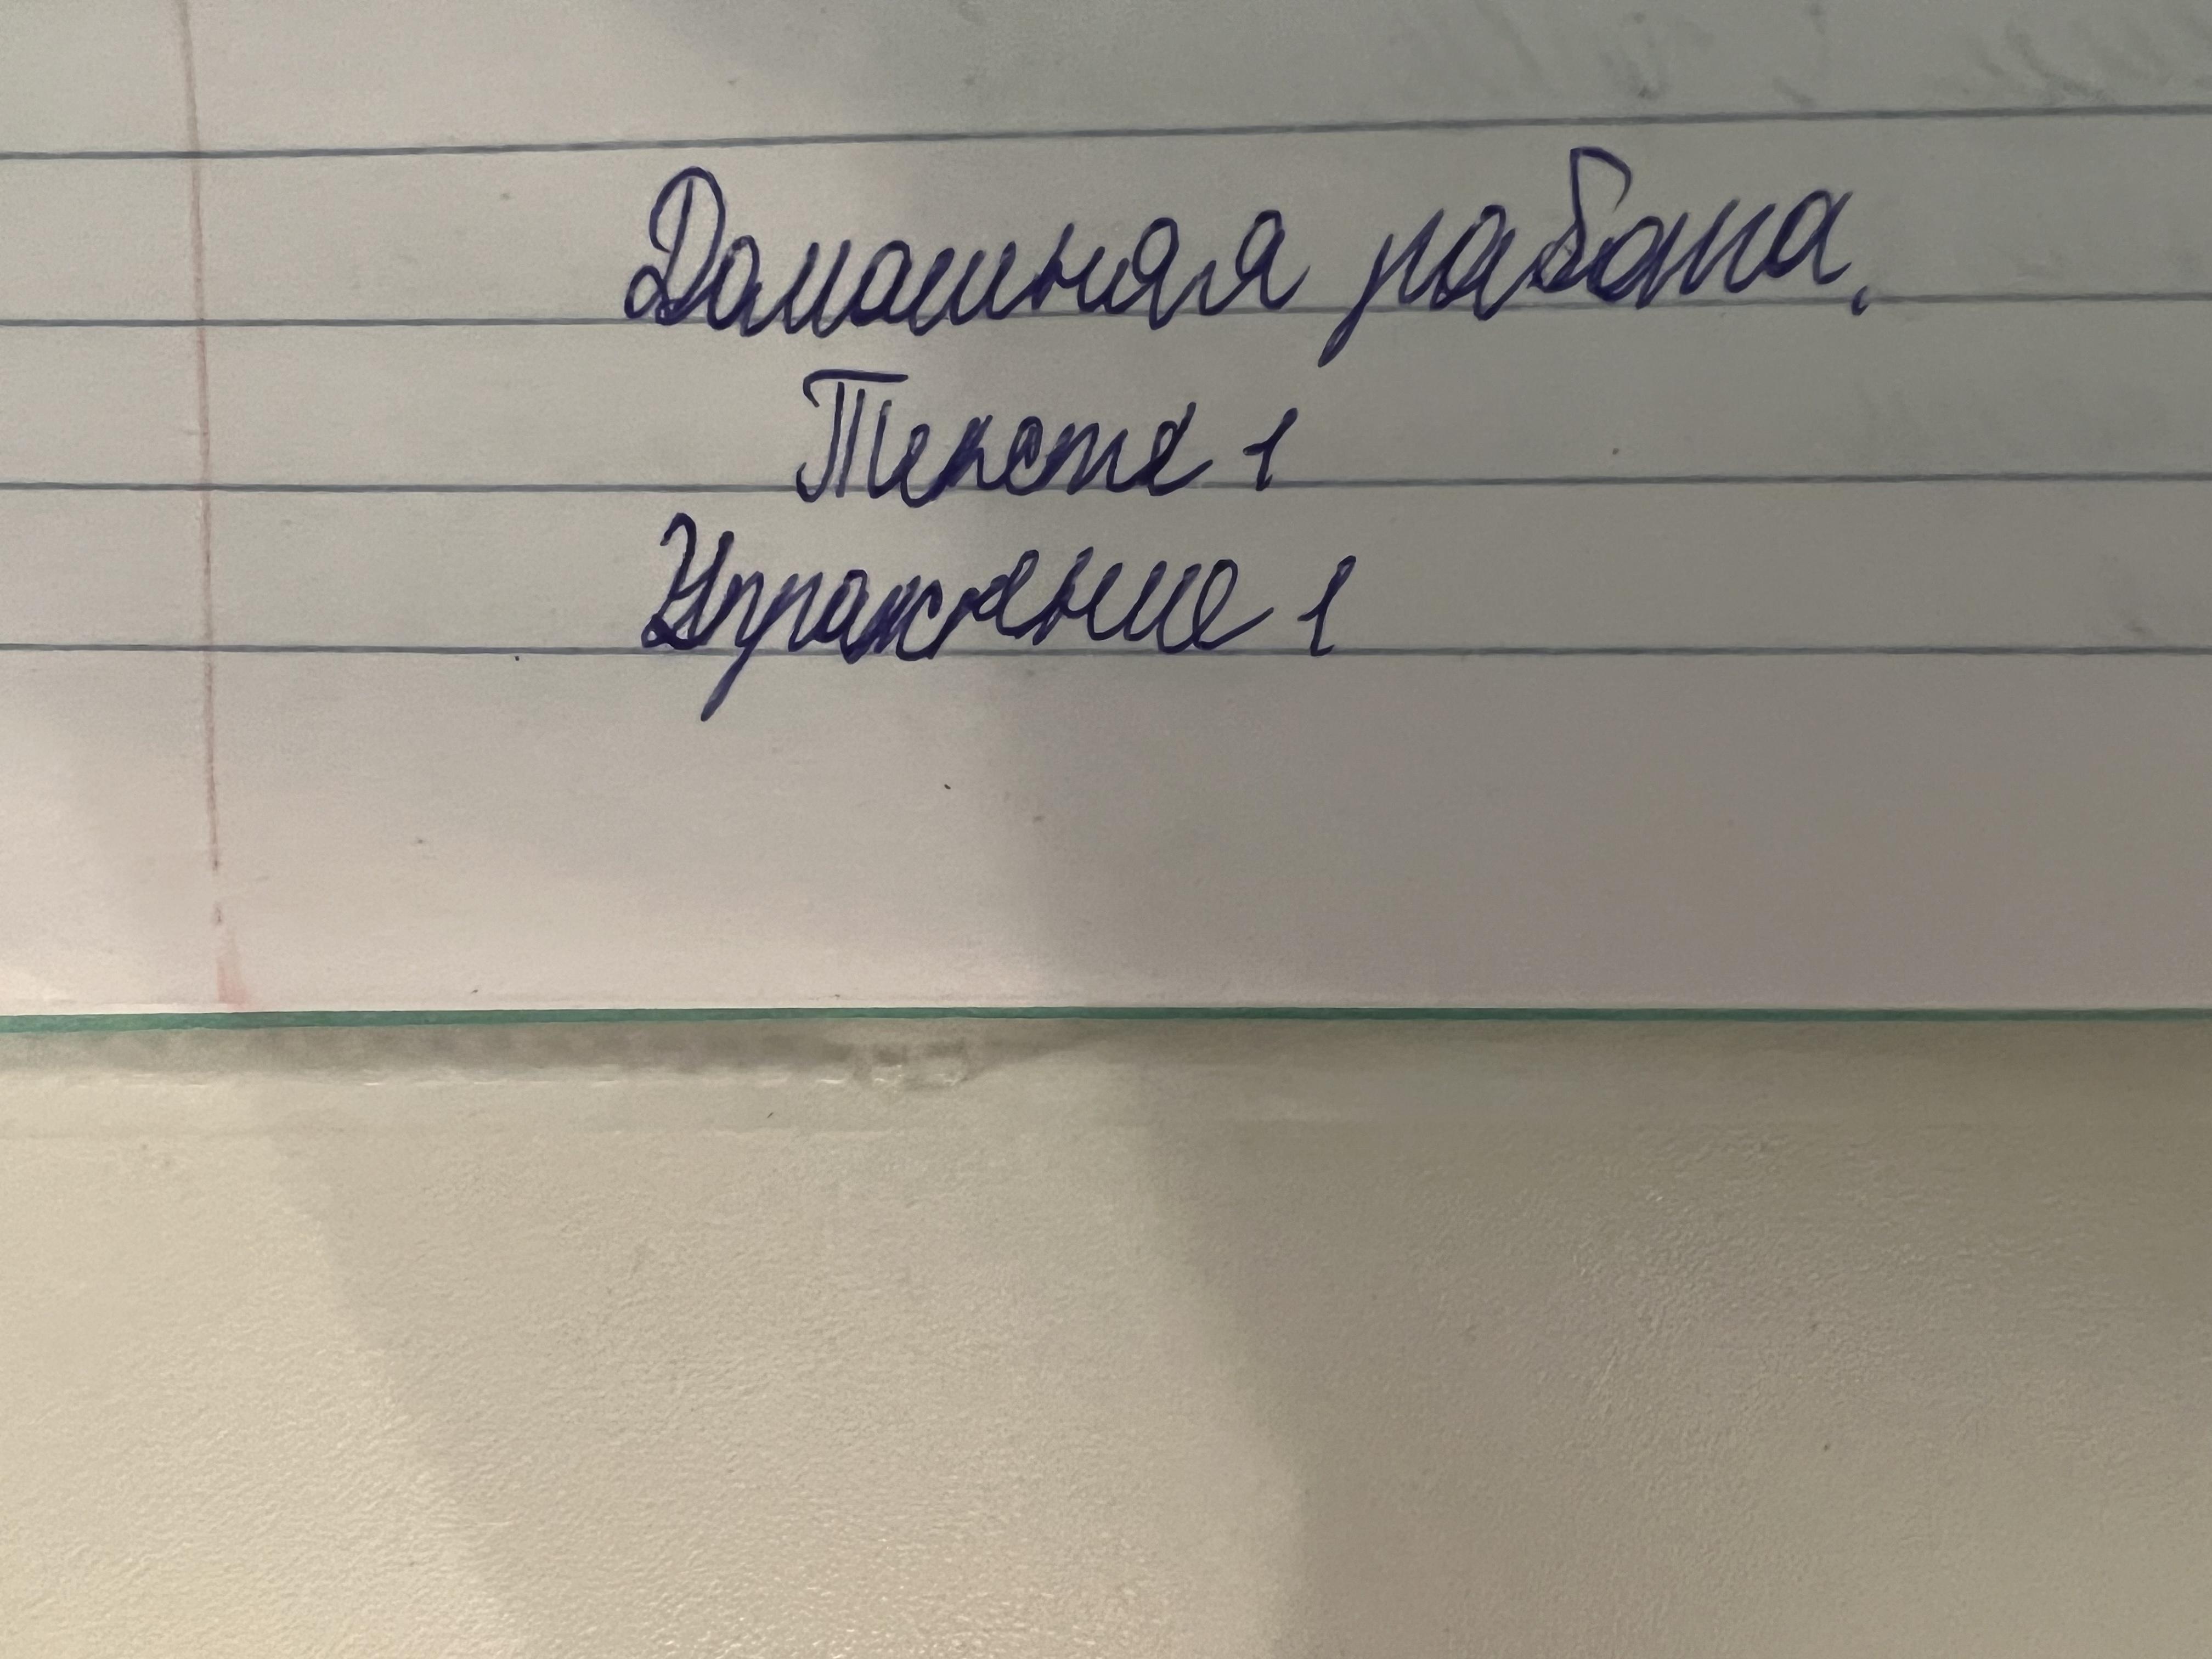 Домашняя работа.
Тексте 1
Упражнение 1